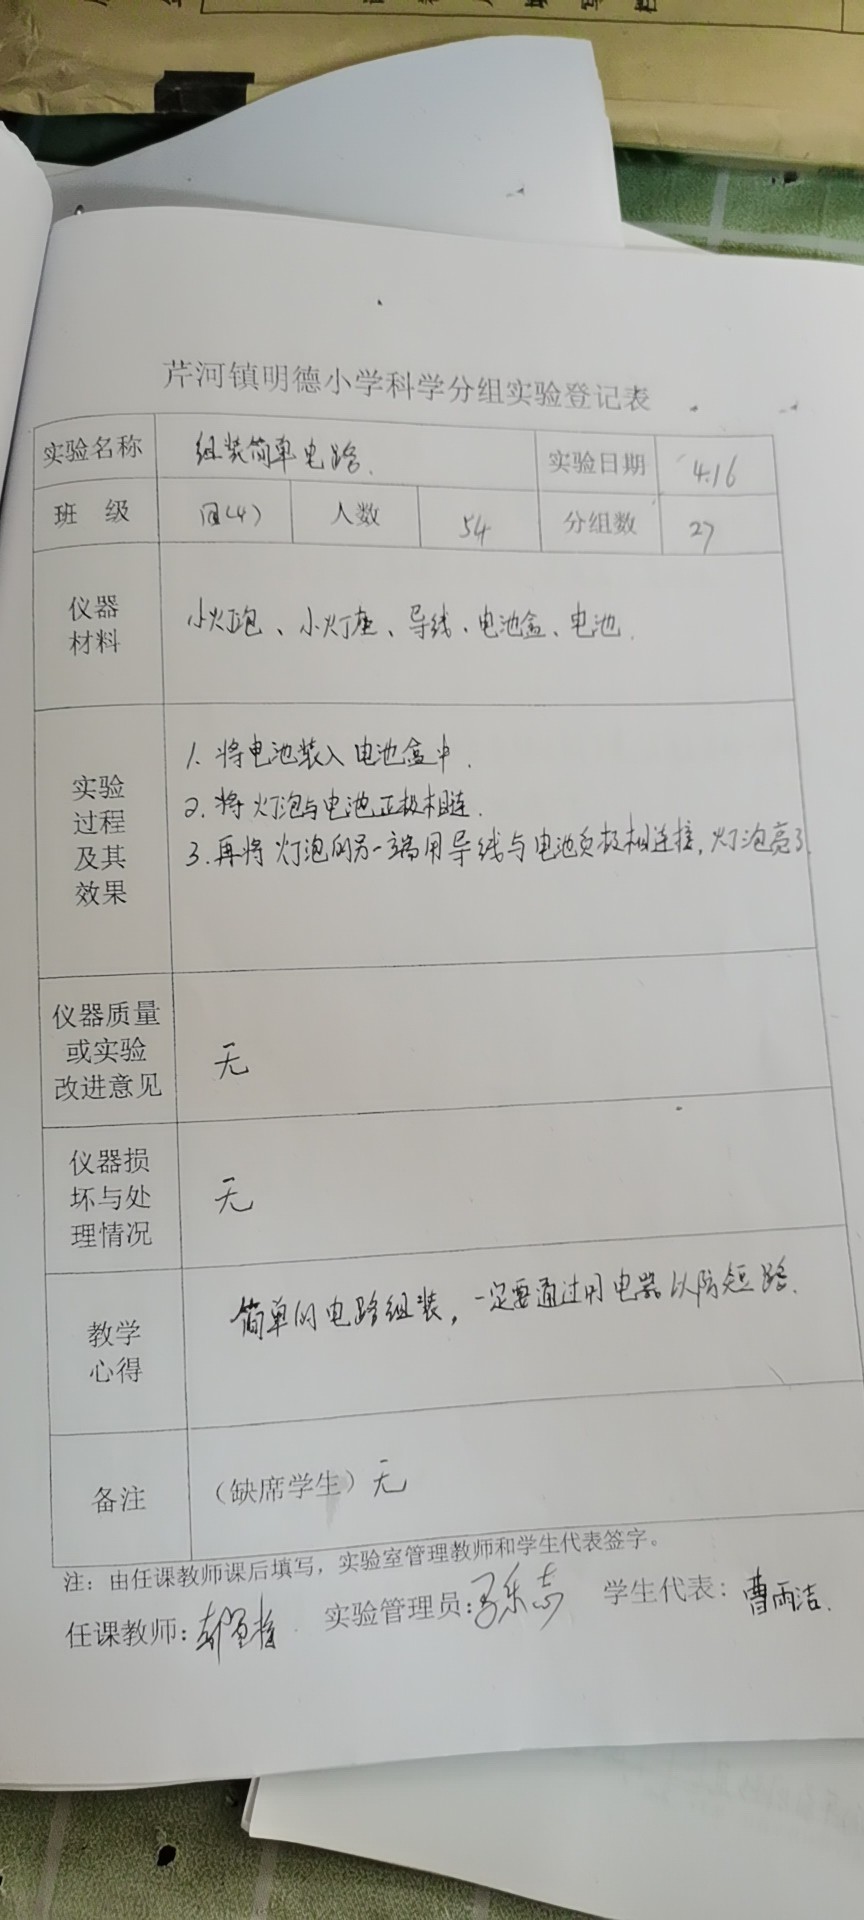 芹河镇明德小学科学分组实验登记表
实验名称 组装简单电路. 实验日期 4.16
班 级 四(4) 人数 54 分组数 27
仪器
材料
小灯泡、小灯座、导线、电池盒、电池.
实验
过程
及其
效果
1. 将电池装入电池盒中.
2. 将灯泡与电池正极相连.
3. 再将灯泡的另一端用导线与电池负极相连接,灯泡亮了.
仪器质量
或实验
改进意见
无
仪器损
坏与处
理情况
无
教学
心得
简单的电路组装,一定要通过用电器以防短路.
备注 (缺席学生)无
注:由任课教师课后填写,实验室管理教师和学生代表签字。
任课教师: 实验管理员: 学生代表:曹雨洁.